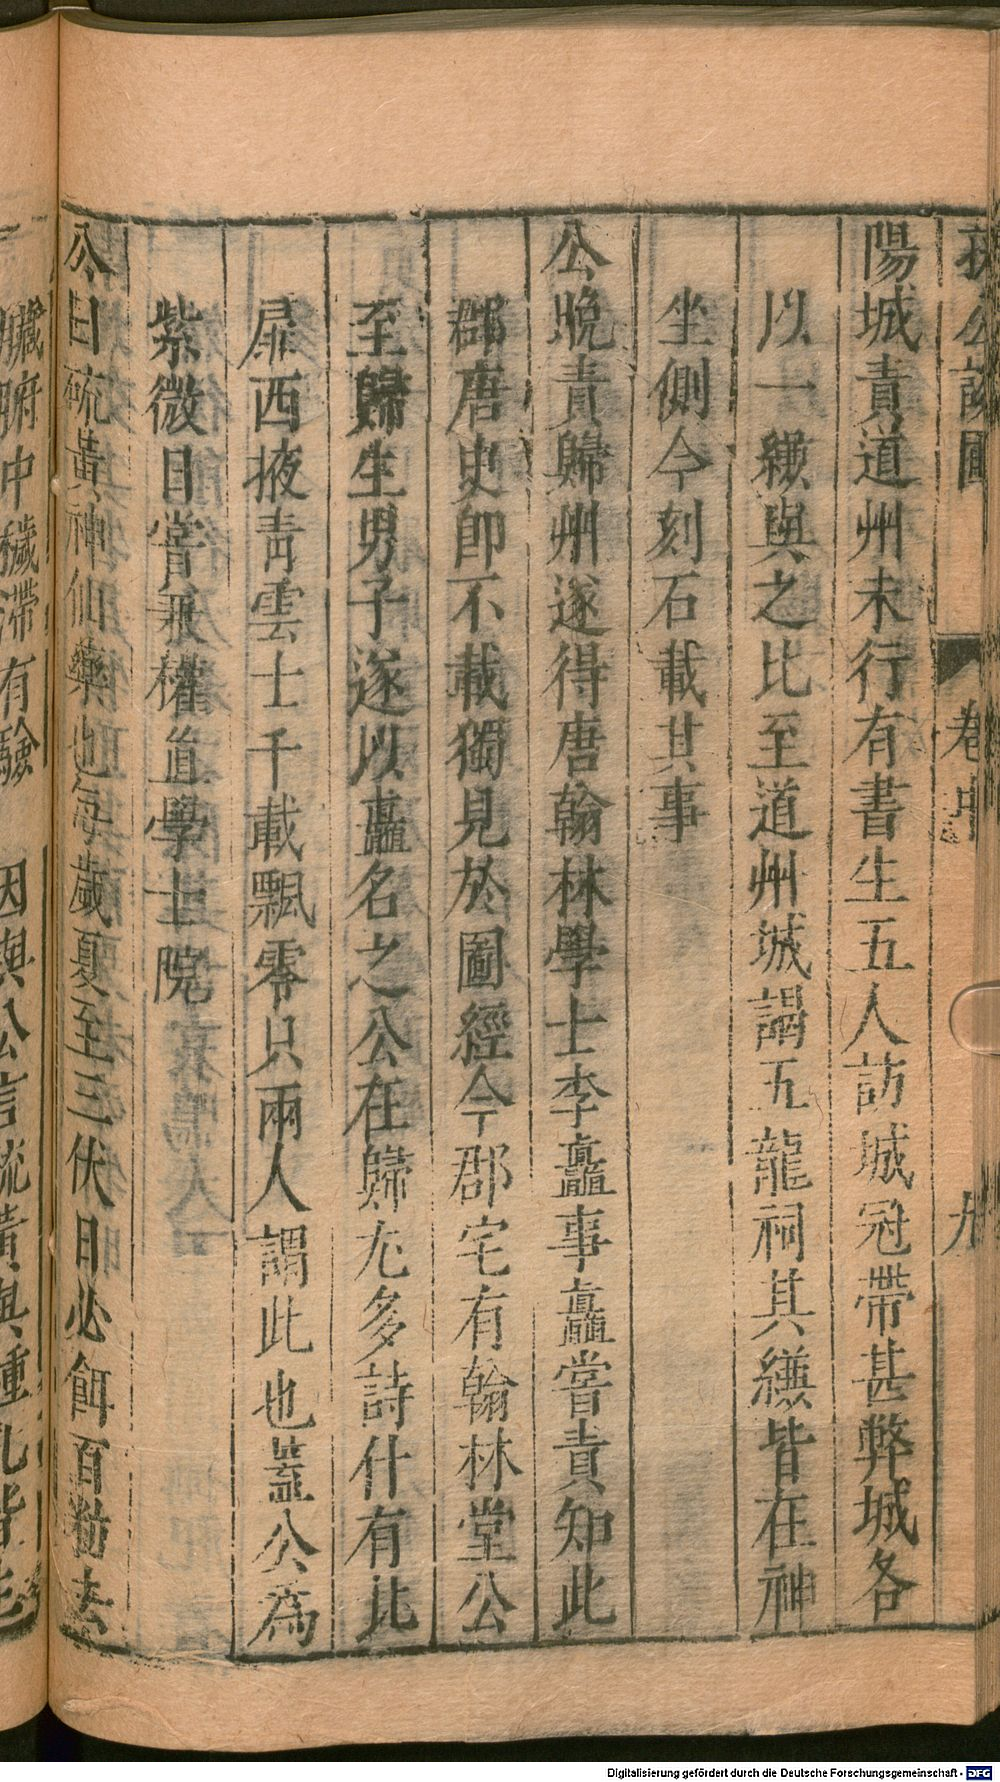 孫公談圃
卷中
九
陽城責道州未行有書生五人訪城冠帶甚弊城各
以一縑與之比至道州城謁五龍祠其縑皆在神
坐側今刻石載其事
公晚責歸州遂得唐翰林學士李驫事驫嘗責知此
郡唐史即不載獨見於圖經今郡宅有翰林堂公
至歸生男子遂以驫名之公在歸尤多詩什有比
扉西掖青雲士千載飄零只兩人謂此也蓋公為
紫微日嘗兼權直學士院
公曰硫黃神仙藥也每歲夏至三伏日必餌百粒去
臟腑中穢滯有驗 因與公言硫黃與鍾乳皆
Digitalisierung gefördert durch die Deutsche Forschungsgemeinschaft - DFG